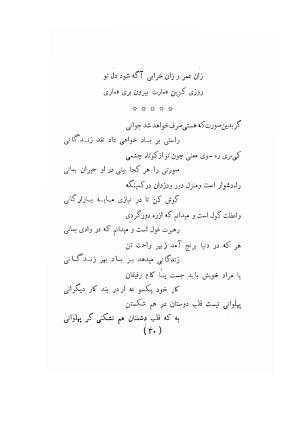 زان عمر و زان خرابی آگه شود دل تو
روزی کزین عمارت بیرون بری عماری
* * * * *
گر بدین صورت که هستی صرف خواهد شد جوانی
راستی بر باد خواهی داد نقد زندگانی
کی بری ره سوی معنی چون تو از کوتاه چشمی
صورتی را هر کجا بینی در او حیران بمانی
راه دشوار است ومنزل دور ودزدان در کمینگه
گوش کن تا در نیازی مایه بازارگانی
واعظت گول است و میدانم که ازره دور گردی
رهبرت غول است و میدانم که در وادی بمانی
هر که در دنیا برنج آمد زبهر راحت تن
زندگانی میدهد بر باد بهر زندگانی
یا مراد خویش باید جست یا کام رفیقان
کار خود یکسو نه ار در بند کار دیگرانی
پهلوانی نیست قلب دوستان در هم شکستن
به که قلب دشمنان هم نشکنی گر پهلوانی
(۳۰)